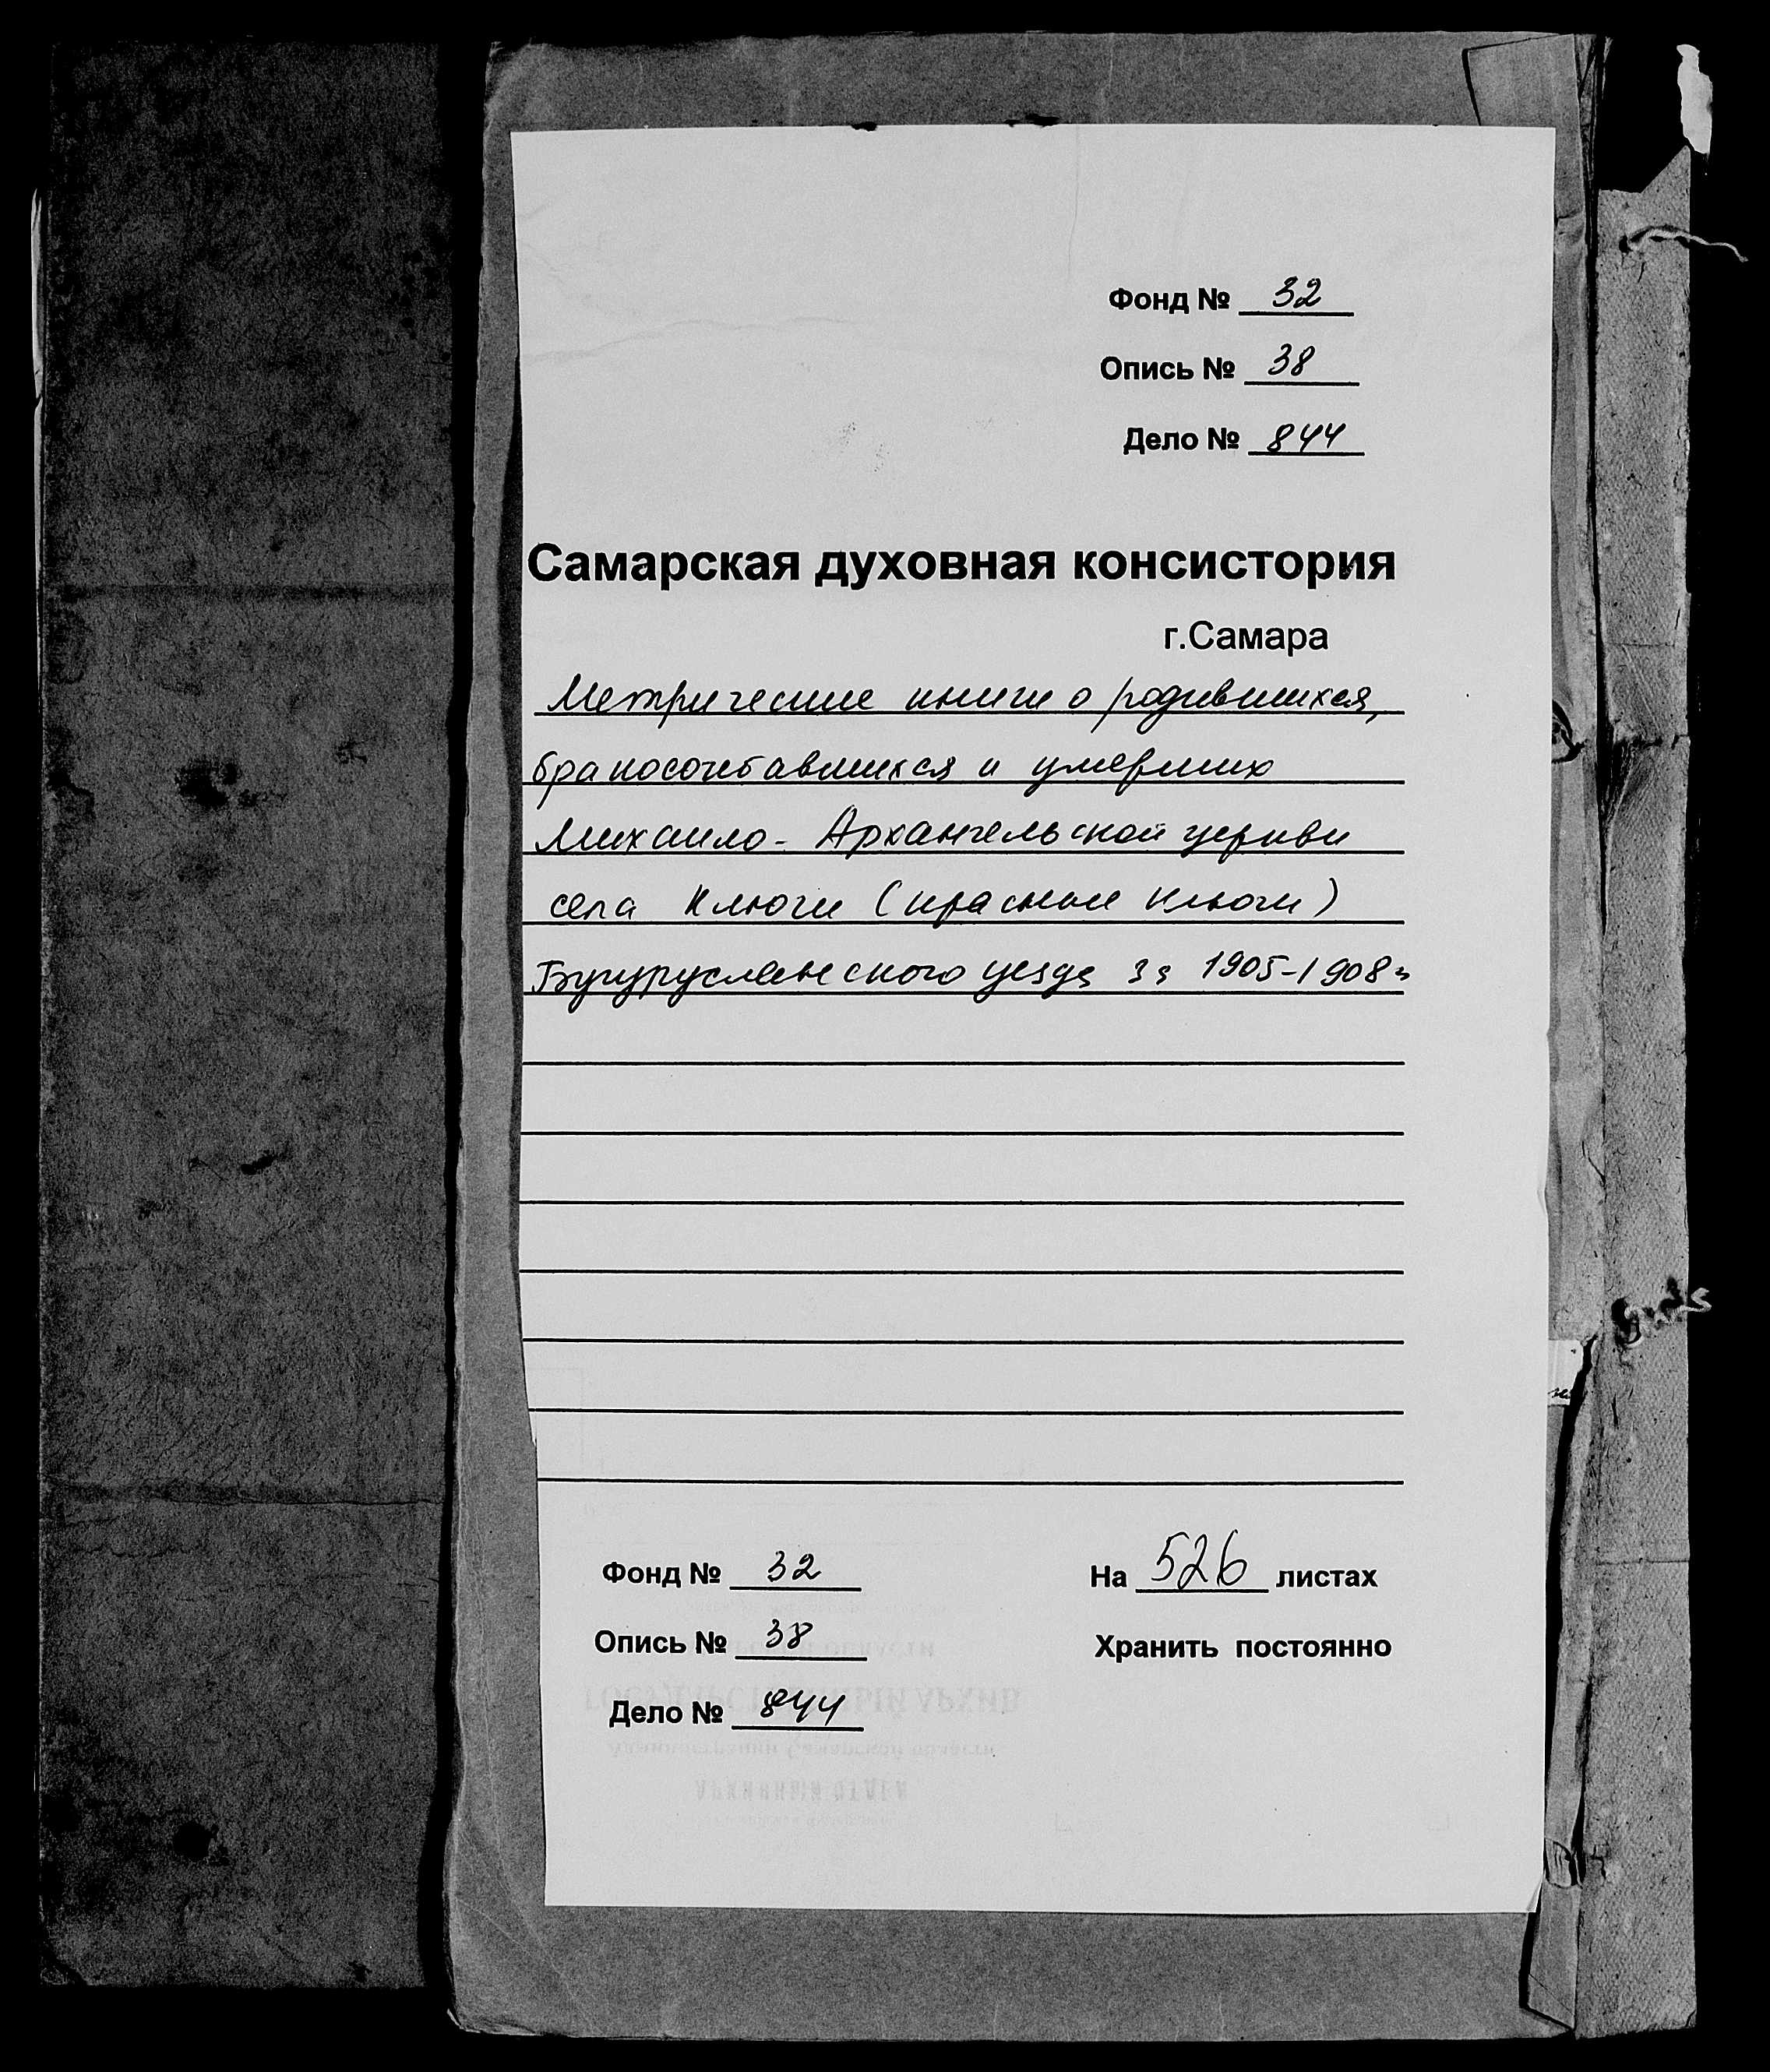 Фонд № 32
Опись № 38
Дело № 844
Самарская духовная консистория
г.Самара
Метрические книги о родившихся,
бракосочетавшихся и умерших
Михаило-Архангельской церкви
села Ключи (Красные Ключи)
Бугурусланского уезда за 1905-1908г
Фонд № 32
Опись № 38
Дело № 844
На 526 листах
Хранить постоянно